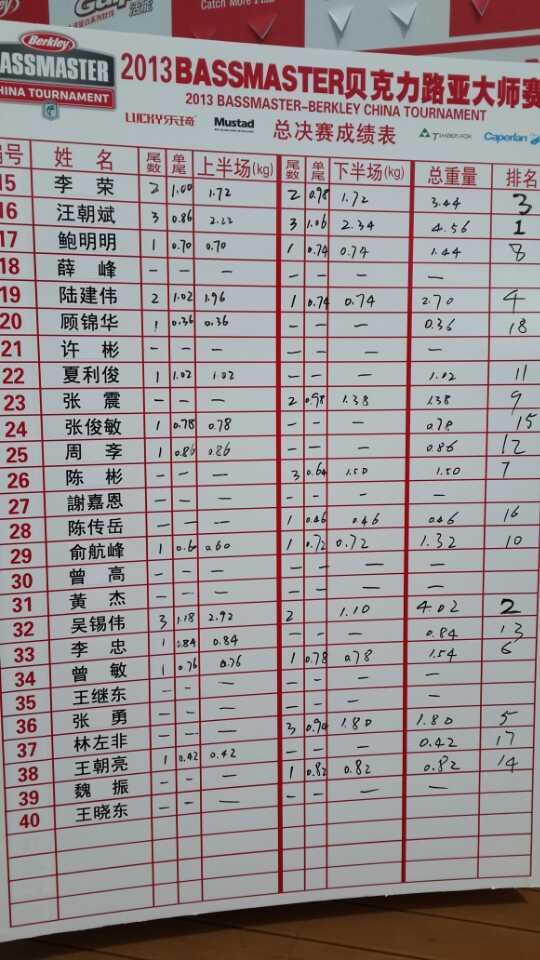 Berkley
BASSMASTER
CHINA TOURNAMENT
Catch More Fish
2013BASSMASTER贝克力路亚大师赛
2013 BASSMASTER-BERKLEY CHINA TOURNAMENT
LUCKY乐琦 Mustad 总决赛成绩表 TIMBER-FOX Caperlan
编号 姓名 尾数 单尾 上半场(kg) 尾数 单尾 下半场(kg) 总重量 排名
15 李荣 2 1.00 1.72 2 0.98 1.72 3.44 3
16 汪朝斌 3 0.86 2.22 3 1.06 2.34 4.56 1
17 鲍明明 1 0.70 0.70 1 0.74 0.74 1.44 8
18 薛峰 — — — — — — —
19 陆建伟 2 1.02 1.96 1 0.74 0.74 2.70 4
20 顾锦华 1 0.36 0.36 — — — 0.36 18
21 许彬 — — — — — — —
22 夏利俊 1 1.02 1.02 — — — 1.02 11
23 张震 — — — 2 0.98 1.38 1.38 9
24 张俊敏 1 0.78 0.78 — — — 0.78 15
25 周斈 1 0.86 0.86 — — — 0.86 12
26 陈彬 — — — 3 0.64 1.50 1.50 7
27 謝嘉恩 — — — — — — —
28 陈传岳 — — — 1 0.46 0.46 0.46 16
29 俞航峰 1 0.60 0.60 1 0.72 0.72 1.32 10
30 曾高 — — — — — — —
31 黄杰 — — — — — — —
32 吴锡伟 3 1.18 2.92 2 1.10 4.02 2
33 李忠 1 0.84 0.84 — — — 0.84 13
34 曾敏 1 0.76 0.76 1 0.78 0.78 1.54 6
35 王继东 — — — — — — —
36 张勇 — — — — — — —
37 林左非 — — — 3 0.94 1.80 1.80 5
38 王朝亮 1 0.42 0.42 — — — 0.42 17
39 魏振 — — — 1 0.82 0.82 0.82 14
40 王晓东 — — — — — — —